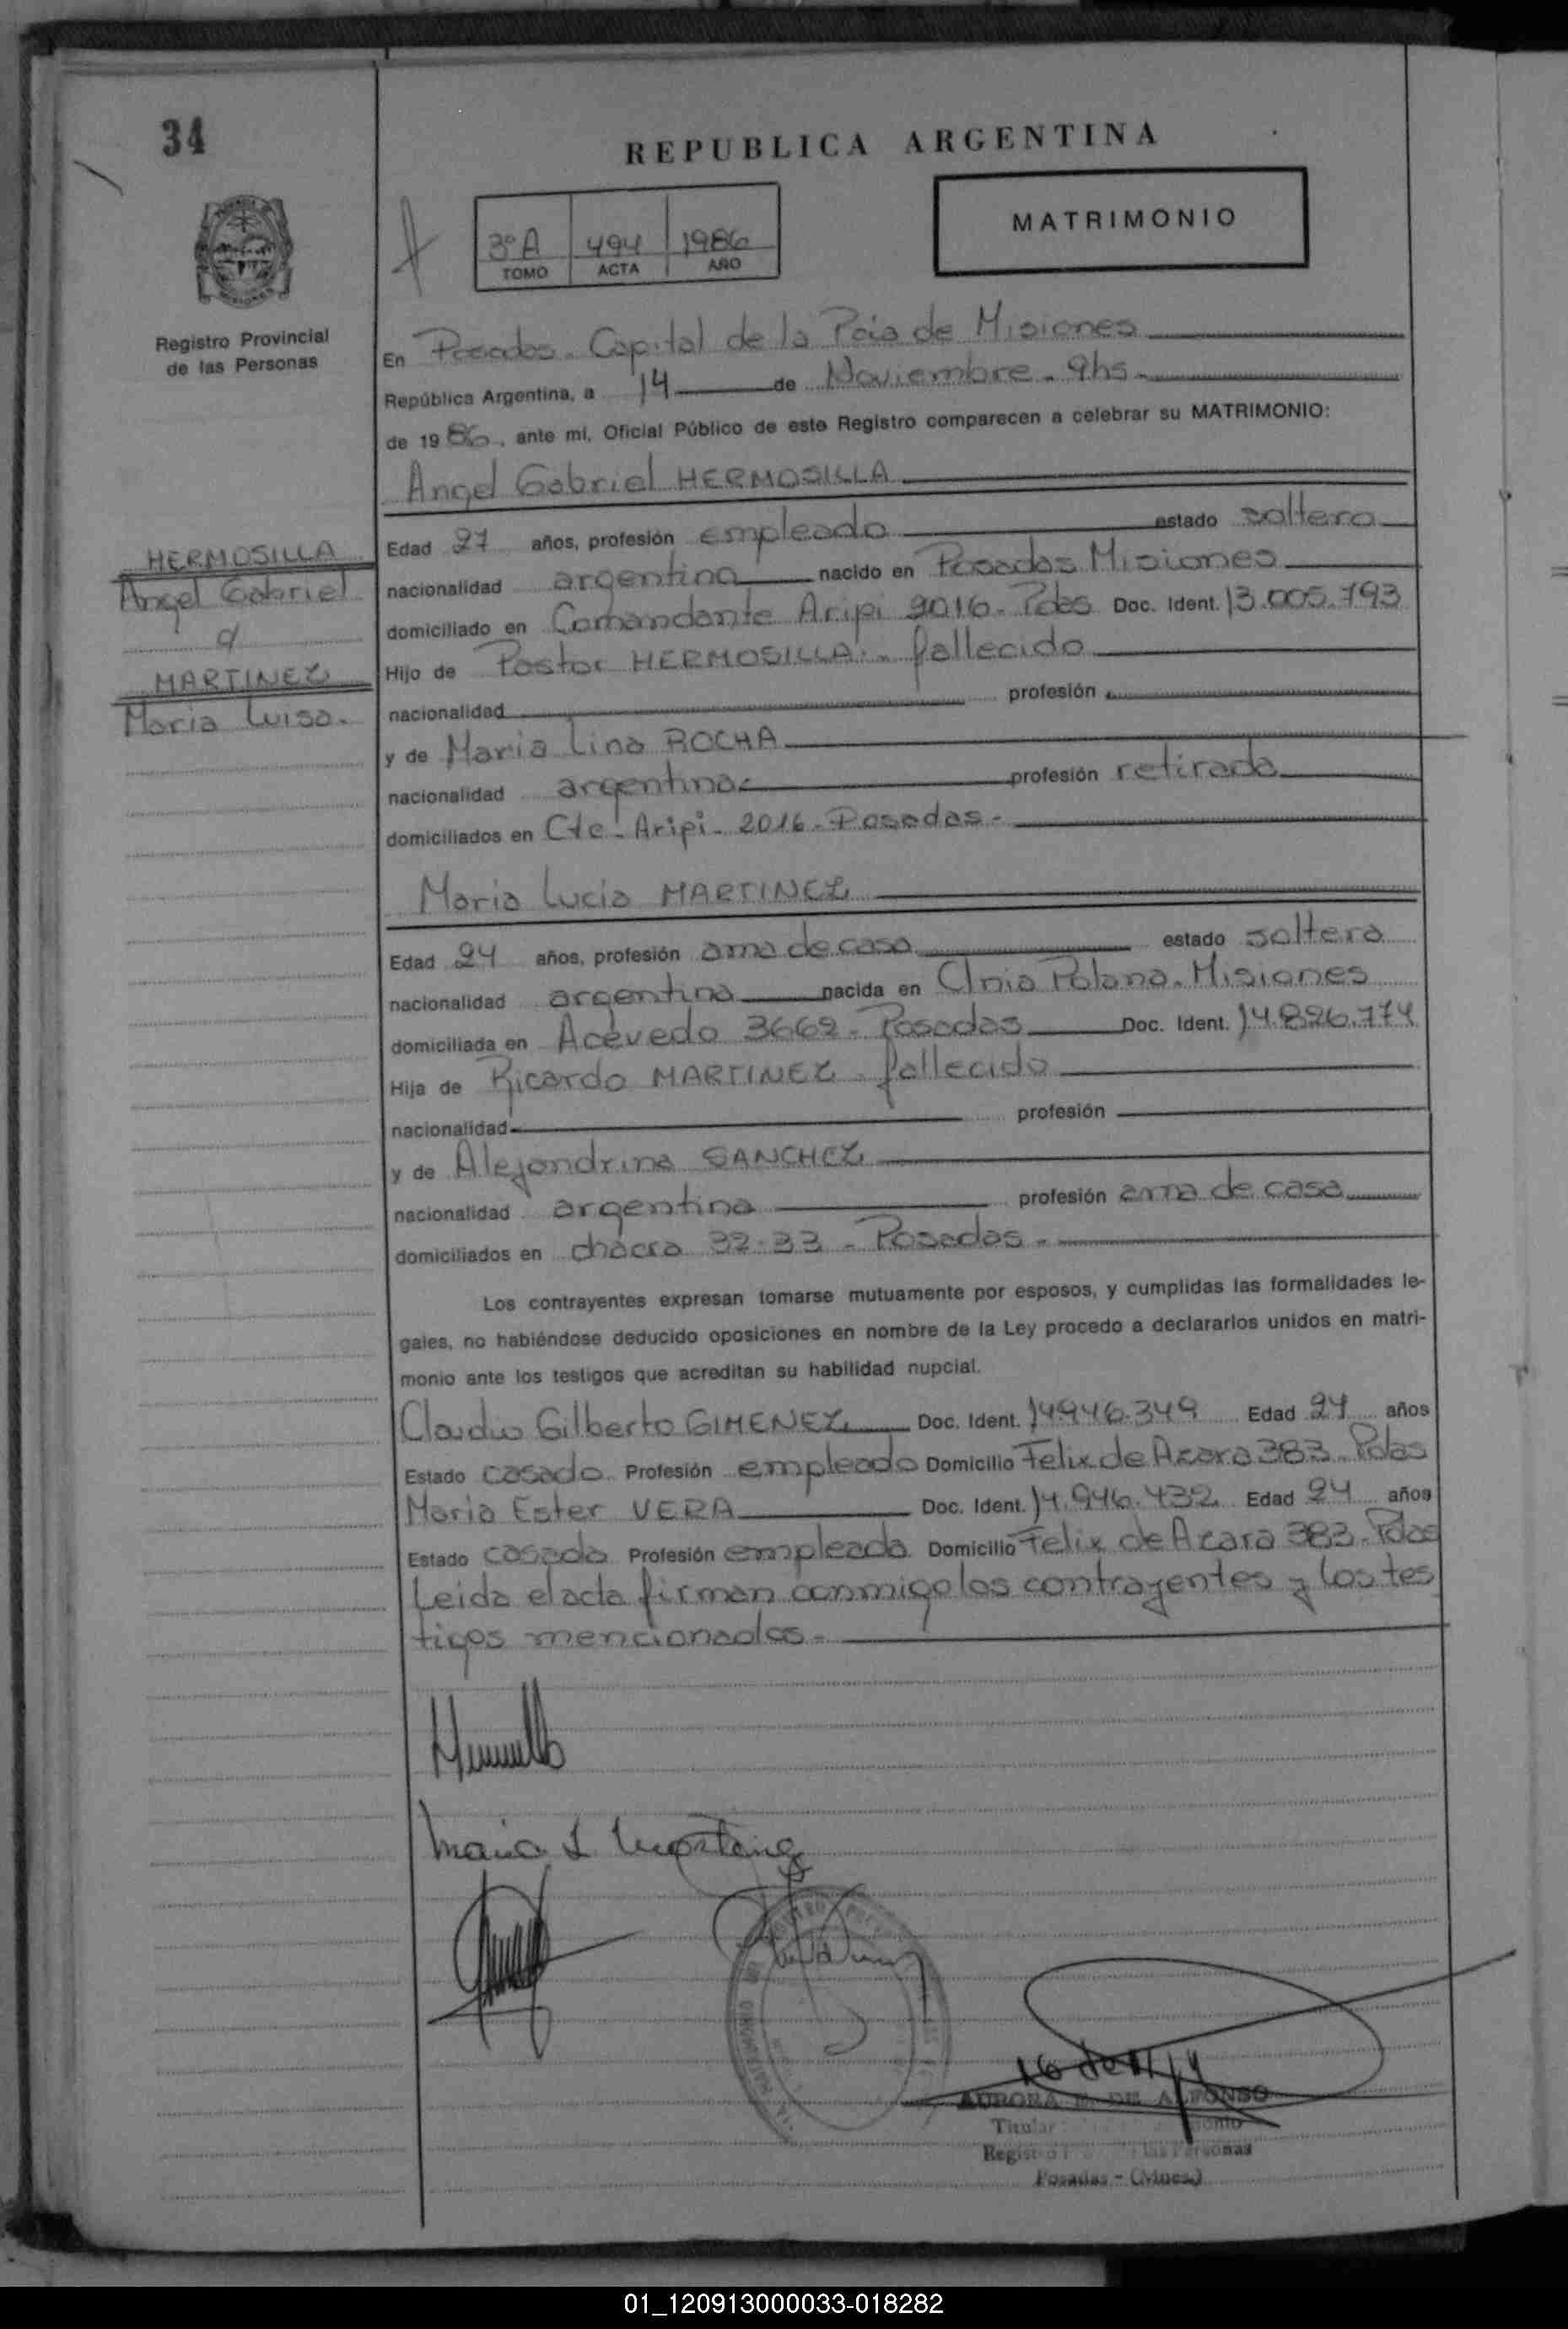 34
REPUBLICA ARGENTINA
MATRIMONIO
3º A 494 1986
TOMO ACTA AÑO
Registro Provincial
de las Personas
En Posadas. Capital de la Pcia de Misiones
República Argentina, a 14 de Noviembre. 9hs.
de 1986, ante mi, Oficial Público de este Registro comparecen a celebrar su MATRIMONIO:
Angel Gabriel HERMOSILLA
HERMOSILLA
Angel Gabriel
c/
MARTINEZ
Maria Luisa.
Edad 27 años, profesión empleado estado soltero
nacionalidad argentina nacido en Posadas Misiones
domiciliado en Comandante Aripi 2016. Pdas Doc. Ident. 13.005.793
Hijo de Pastor HERMOSILLA. fallecido
nacionalidad profesión
y de Maria Lina ROCHA
nacionalidad argentina profesión retirada
domiciliados en Cte. Aripi. 2016. Posadas.
Maria Lucia MARTINEZ
Edad 24 años, profesión ama de casa estado soltera
nacionalidad argentina nacida en Clnia Polana. Misiones
domiciliada en Acevedo 3662. Posadas Doc. Ident. 14.826.774
Hija de Ricardo MARTINEZ. fallecido
nacionalidad profesión
y de Alejandrina SANCHEZ
nacionalidad argentina profesión ama de casa
domiciliados en chacra 32-33 - Posadas.
Los contrayentes expresan tomarse mutuamente por esposos, y cumplidas las formalidades le-
gales, no habiéndose deducido oposiciones en nombre de la Ley procedo a declararlos unidos en matri-
monio ante los testigos que acreditan su habilidad nupcial.
Claudio Gilberto GIMENEZ Doc. Ident. 14.946.349 Edad 24 años
Estado casado Profesión empleado Domicilio Felix de Azara 383. Pdas
Maria Ester VERA Doc. Ident. 14.946.432 Edad 24 años
Estado casada Profesión empleada Domicilio Felix de Azara 383. Pdas
Leida el acta firman conmigo los contrayentes y los tes
tigos mencionados.
Maria L Martinez
AURORA E. DE ALFONSO
Titular
Registro las Personas
Posadas - (Mnes.)
01_120913000033-018282